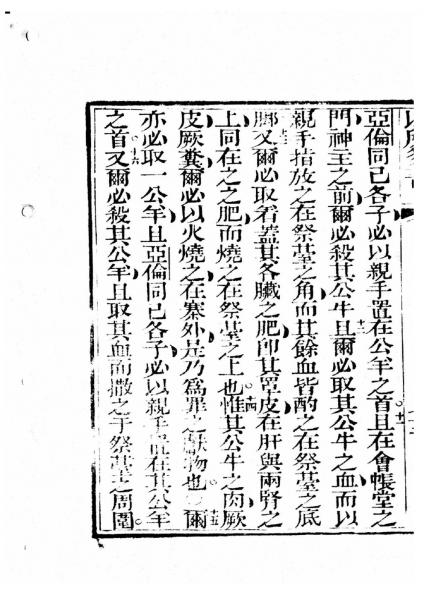 亞倫同已各子必以親手置在公羊之首且在會帳堂之
門神主之前爾必殺其公牛且爾必取其公牛之血而以
親手指放之在祭臺之角而其餘血皆酌之在祭臺之底
脚又爾必取看蓋其各臟之肥即其罩皮在肝與兩腎之
上同在之之肥而燒之在祭臺之上也惟其公牛之肉厥
皮厥糞爾必以火燒之在寨外是乃為罪之獻物也○爾
亦必取一公羊且亞倫同已各子必以親手置在其公羊
之首又爾必殺其公羊且取其血而撒之于祭臺之周圍